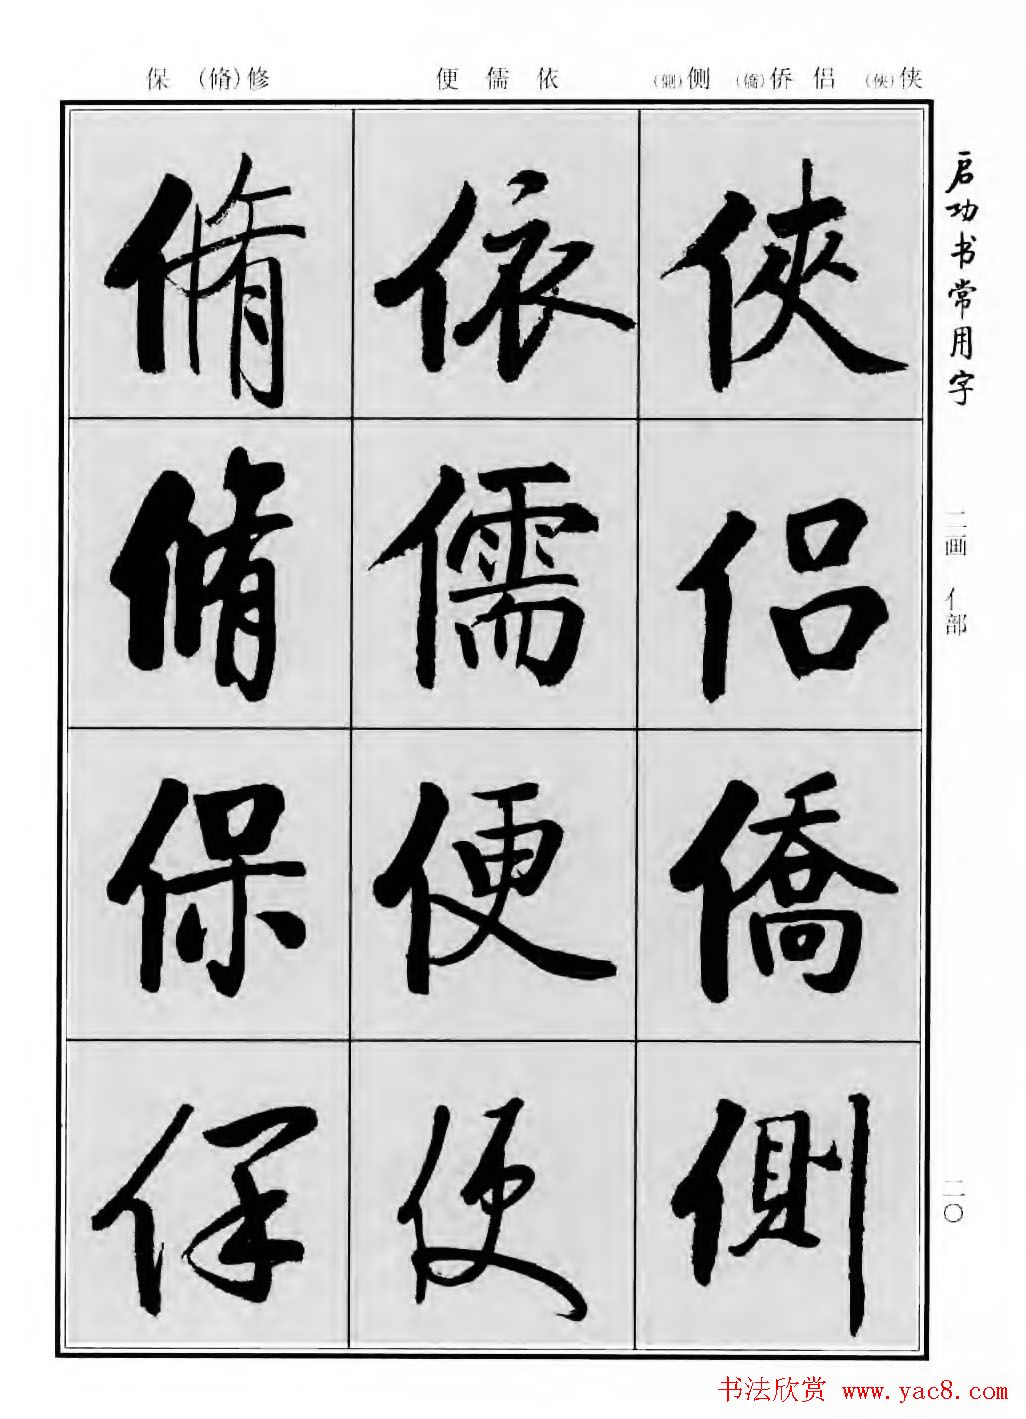 保 (脩)修 便 儒 依 (側)侧 (僑)侨 侣 (俠)侠
启功书常用字
二画 亻部
二〇
俠
侣
僑
側
依
儒
便
便
脩
脩
保
保
书法欣赏 www.yac8.com